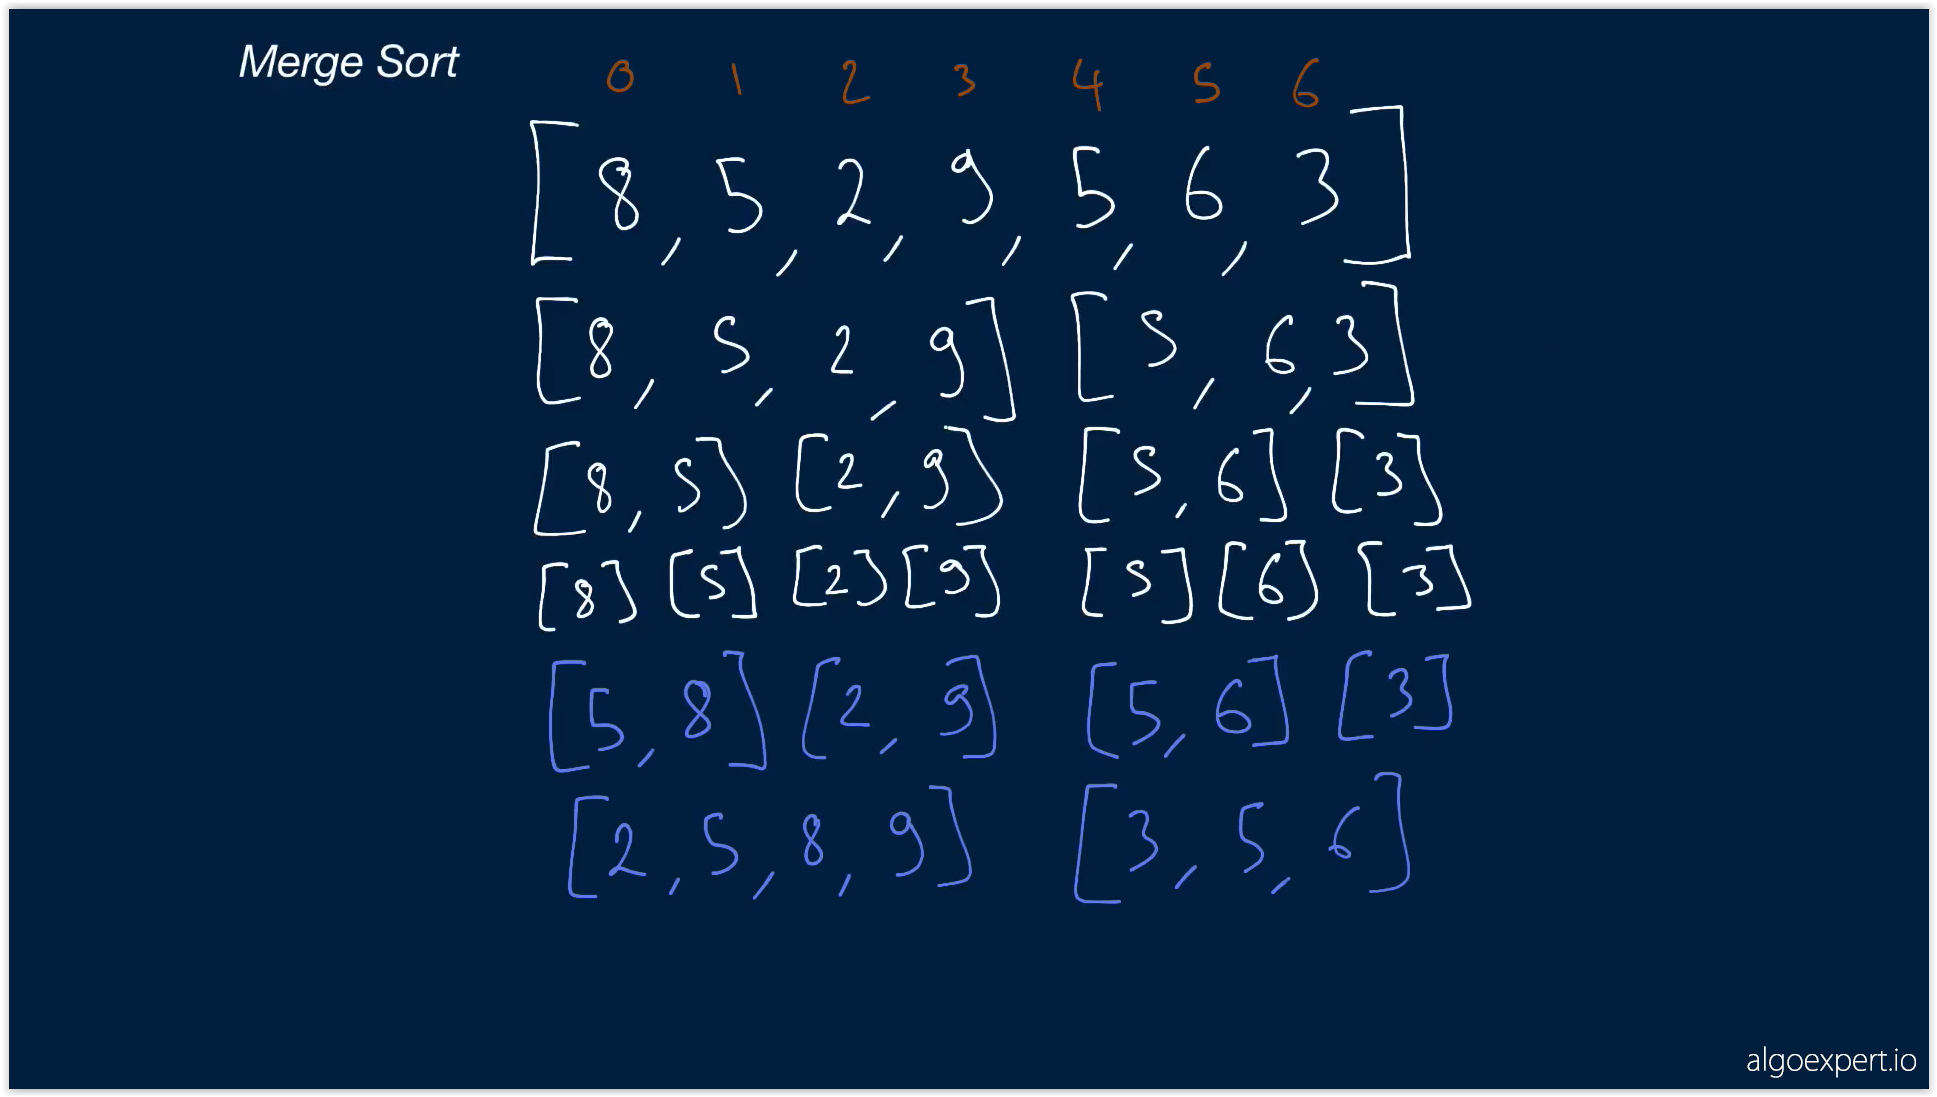 Merge Sort
0 1 2 3 4 5 6
[8, 5, 2, 9, 5, 6, 3]
[8, 5, 2, 9] [5, 6, 3]
[8, 5] [2, 9] [5, 6] [3]
[8] [5] [2] [9] [5] [6] [3]
[5, 8] [2, 9] [5, 6] [3]
[2, 5, 8, 9] [3, 5, 6]
algoexpert.io